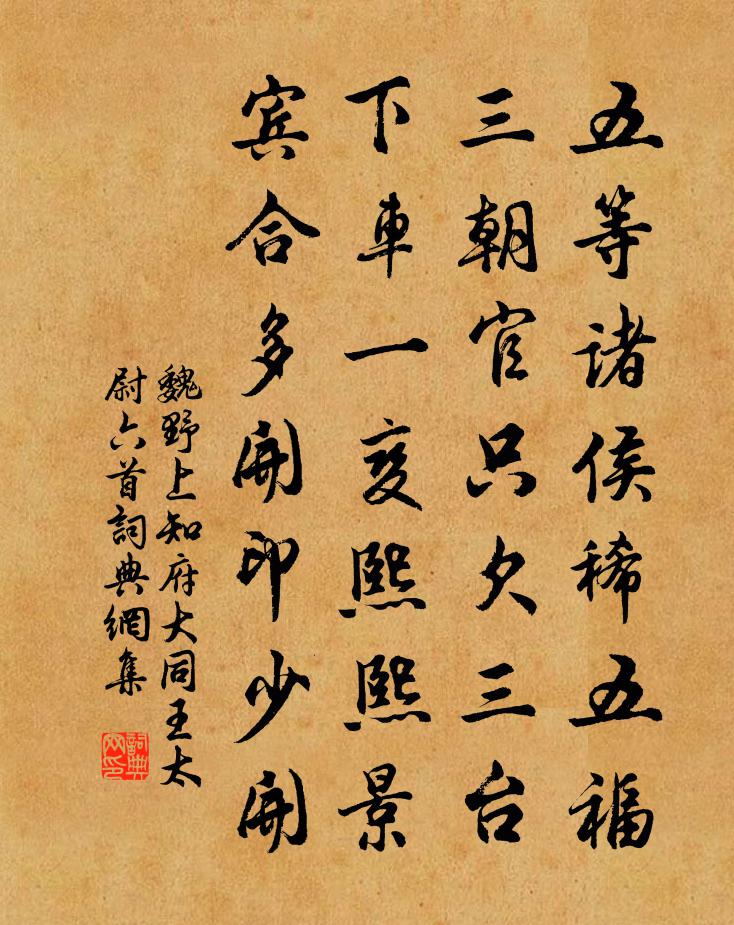 五等諸侯稀五福
三朝官只欠三台
下車一変熙熙景
宾合多開印少開
魏野上知府大同王太
尉六首詞典網集
詞典
网印